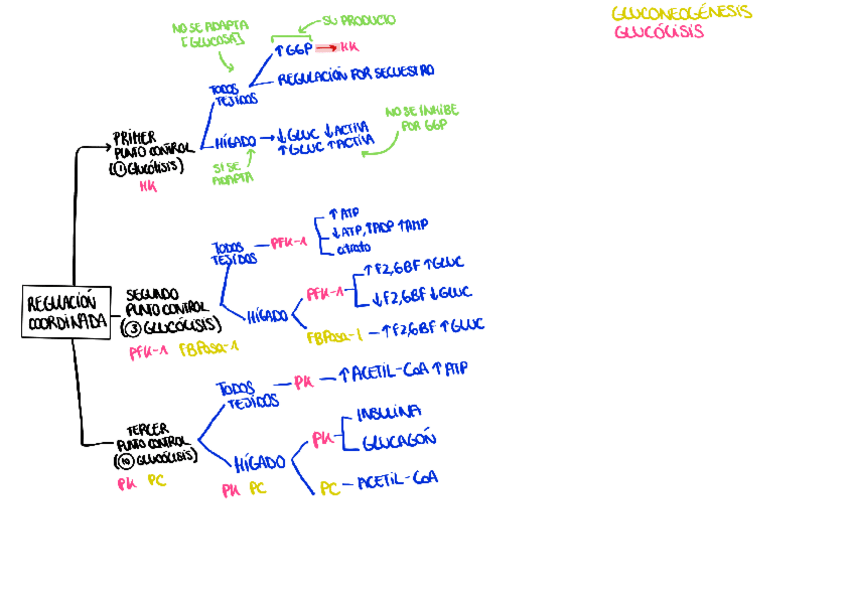 GLUCONEOGÉNESIS
GLUCÓLISIS
NO SE ADAPTA
[GLUCOSA]
SU PRODUCTO
↑G6P → HK
REGULACIÓN POR SECUESTRO
TODOS
TEJIDOS
NO SE INHIBE
POR G6P
HÍGADO → ↓GLUC ↓ACTIVA
↑GLUC ↑ACTIVA
SI SE
ADAPTA
PRIMER
PUNTO CONTROL
(① GLUCÓLISIS)
HK
↑ATP
↓ATP, ↑ADP ↑AMP
citrato
TODOS
TEJIDOS
PFK-1
↑F2,6BF ↑GLUC
PFK-1
↓F2,6BF ↓GLUC
HÍGADO
FBPasa-1 - ↑F2,6BF ↑GLUC
REGULACIÓN
COORDINADA
SEGUNDO
PUNTO CONTROL
(③ GLUCÓLISIS)
PFK-1 FBPasa-1
TODOS
TEJIDOS
PK - ↑ACETIL-CoA ↑ATP
INSULINA
PK
GLUCAGÓN
HÍGADO
PK PC
PC - ACETIL-CoA
TERCER
PUNTO CONTROL
(⑩ GLUCÓLISIS)
PK PC